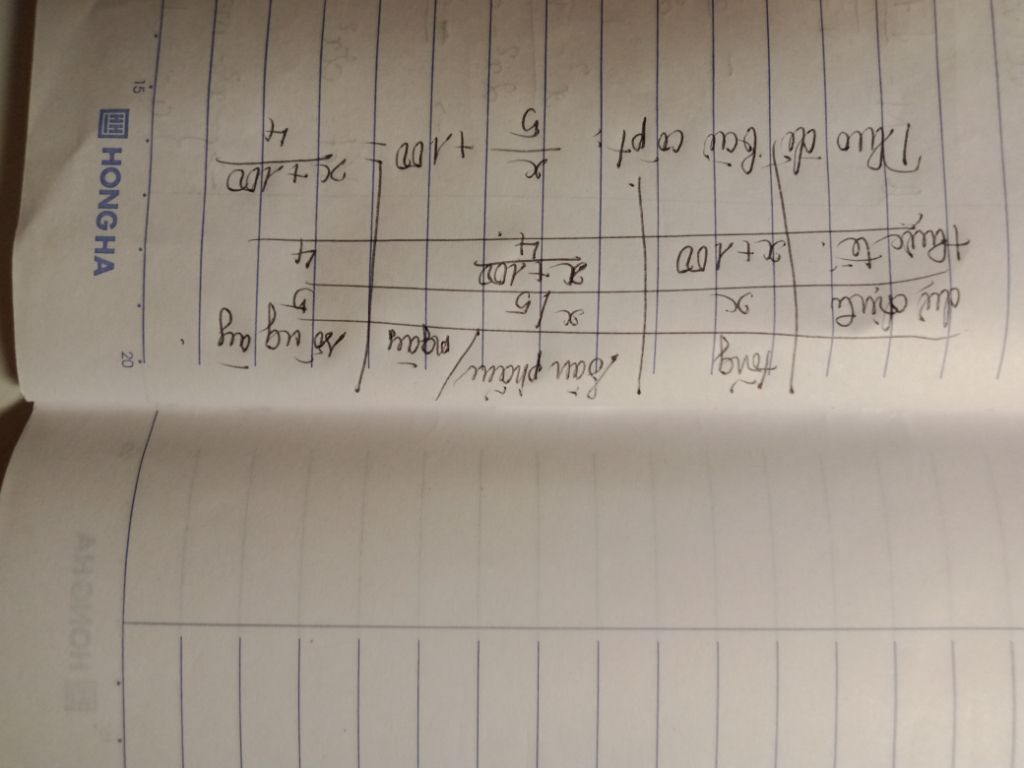 tổng | sản phẩm / ngày | số ngày
dự định | x | x/5 | 5
thực tế | x + 100 | (x + 100)/4 | 4
Theo đề Bài có pt: x/5 + 100 = (x + 100)/4
20
15
HONGHA
HONGHA